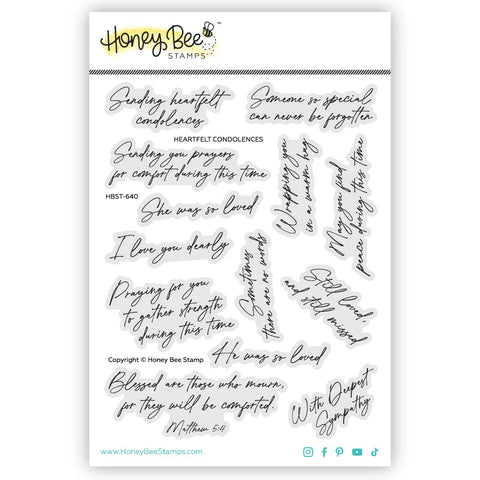 Honey Bee
STAMPS
Sending heartfelt
condolences
Someone so special
can never be forgotten
HEARTFELT CONDOLENCES
Sending you prayers
for comfort during this time
HBST-640
She was so loved
Wrapping you
in a warm hug
May you find
peace during this time
I love you dearly
Sometimes
there are no words
Still loved,
and still missed
Praying for you
to gather strength
during this time
He was so loved
Copyright © Honey Bee Stamp
Blessed are those who mourn,
for they will be comforted.
Matthew 5:4
With Deepest
Sympathy
www.HoneyBeeStamps.com